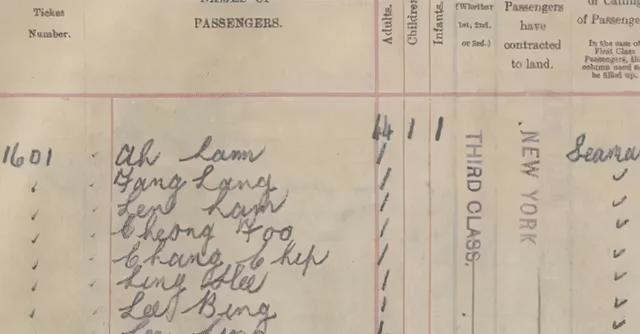 Ticket
Number.
NAMES OF
PASSENGERS.
Adults.
Children
Infants.
(Whether
1st, 2nd,
or 3rd.)
Passengers
have
contracted
to land.
of Passenge
In the case of
First Class
Passengers, this
column need not
be filled up.
44 1 1
1601 Ah Lam Seama
Fang Lang
Len Lam
Cheong Foo
Chang Chip
Ling Hee
Lee Bing
THIRD CLASS.
NEW YORK